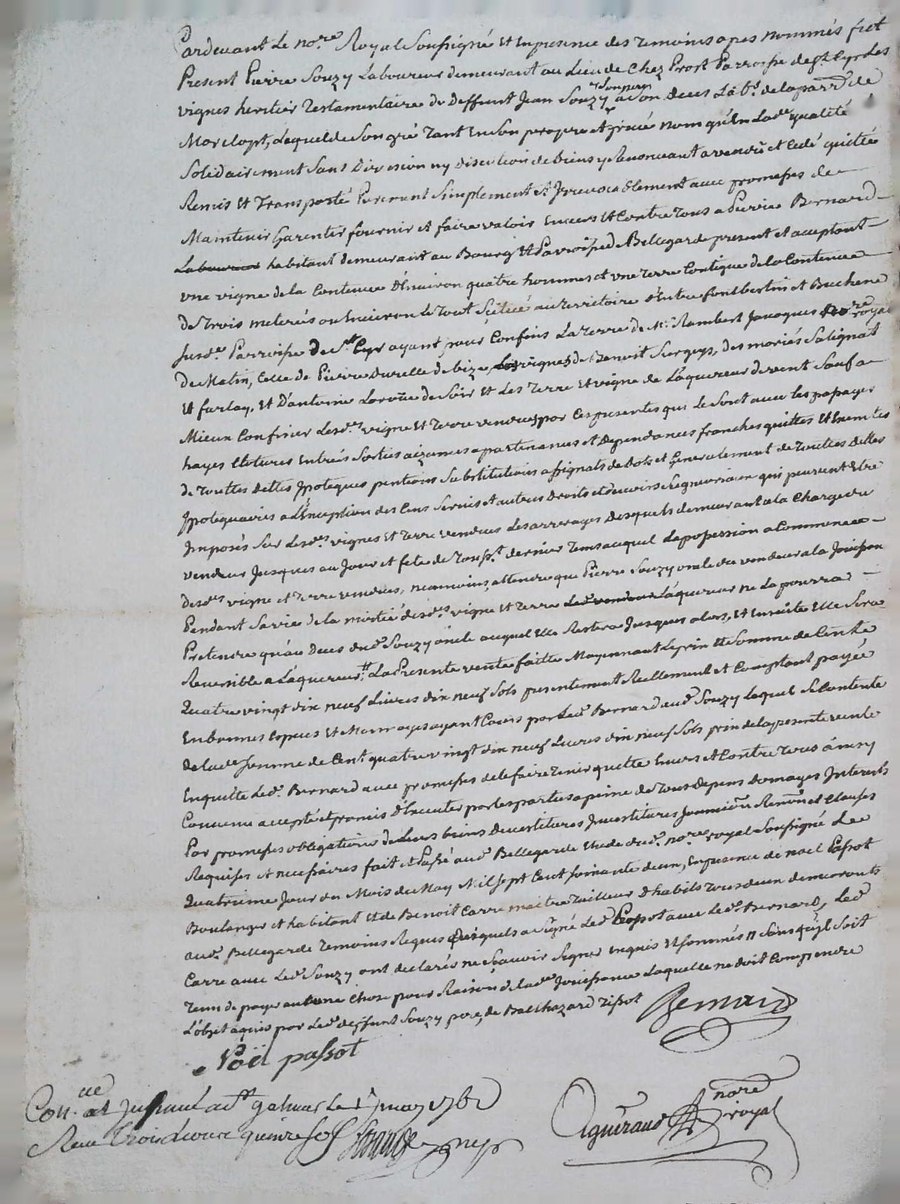 Pardevant Le no.re Royal Soussigné Et En presence des temoins apes nommés fut
Present Pierre Souzy Laboureur demeurant au Lieu de Chez Prost Parroisse de St Cyr Les
vignes heritier Testamentaire de deffunt Jean Souzy son pere a son deces Lab.r de la parr.e de
Marclopt, Lequel de Son gré Tant En Son propre et privé nom qu'En Lad.e qualité
Solidairement Sans Division ny discution de biens y Renonceant a vendu et Cedé quitté
Remis Et Transporté Purement Simplement et Irrevocablement avec promesses de
Maintenir Garentir fournir et faire valoir Envers Et Contre Tous a Pierre Bernard
Laboureur habitant demeurant au Bourg Et Parroisse de Bellegarde present et acceptant
une vigne de la Contenue d'Environ quatre hommes et une Terre Contigue de la Contenue
de Trois meterés ou Environ Le Tout Scitué au Territoire d'Entre fontbertin et Buchene
Susd.e Parroisse de St Cyr ayant pour Confins La Terre de M.r Rambert Jacques no.re royal
De Matin, Celle de Pierre Durelle de bize, Les vignes de Benoit des mariés Salignat
Et furlay, Et D'antoine de Soir Et Les Terre Et vigne de L'aquereur de vent Sauf a
Mieux Confiner Lesd.es vigne et Terre vendues par Ces presentes qui Le Sont avec Les passages
hayes Clotures Entrées Sorties aizances apartenances et dependances franches quittes Et Exemptes
de Touttes dettes Ipoteques pentions Substitutions assignats de dots et Generalement de Touttes dettes
Ipotequaires a L'Exception des Cens Servis Et autres Droits et devoirs Seigneuriaux qui peuvent Etre
Imposés Sur Lesd.es vignes et Terre vendues Les arrerages desquels demeurant a la Charge du
vendeur Jusques au Jour et fete de Touss.t dernier Tems auquel La possession a Commencé
desd.es vigne et Terre vendues, neanmoins, attendu que Pierre Souzy oncle du vendeur a la Jouissance
Pendant Sa vie de la moitié desd.es vigne et Terre L'aquereur ne La pourra
Pretendre qu'au Deces dud. Souzy oncle auquel Elle Restera Jusques alors, et Ensuite Elle Sera
Reversible a L'aquereur. La Presente vente faitte Moyennant Le prix Et Somme de Cent
Quatre vingt dix neuf Livres dix neuf Sols presentement Reellement et Comptant payée
En bonnes Especes Et Monnoyes ayant Cours par Led. Bernard aud. Souzy Lequel Se Contente
de lad.e Somme de Cent quatre vingt dix neuf Livres dix neuf Sols prix de la presente vente
En quitte Led. Bernard avec promesses de le faire Tenir quitte Envers Et Contre Tous ainsy
Convenu accepté et promis d'Executer par les parties a peine de Tous depens domages Interets
Par promesses obligations de Leurs biens devestitures Investitures Soumi.on Renon.on et Clauses
Requises et necessaires fait et Passé aud. Bellegarde Etude dud. no.re royal Soussigné Le
Quatrieme Jour du Mois de May Mil Sept Cent Soixante deux, En presence de noël Passot
Boulanger et habitant Et de Benoit Carré maitre Tailleur d'habits Tous deux demeurants
aud. Bellegarde Temoins Requis Desquels a Signé Led. Passot avec Led. Bernard, Led.
Carré avec Led. Souzy ont declarés ne Scavoir Signer Enquis et Sommés Sans qu'il Soit
Tenu de payer aucune Chose pour Raison de lad.e Jouissance Laquelle ne doit Comprendre
L'objet aquis par Led. deffunt Souzy pere, de Balthazard
Bernard
Noël passot
Con.lé et le may 1762
Reçu Trois Livres quinze Sols
no.re royal